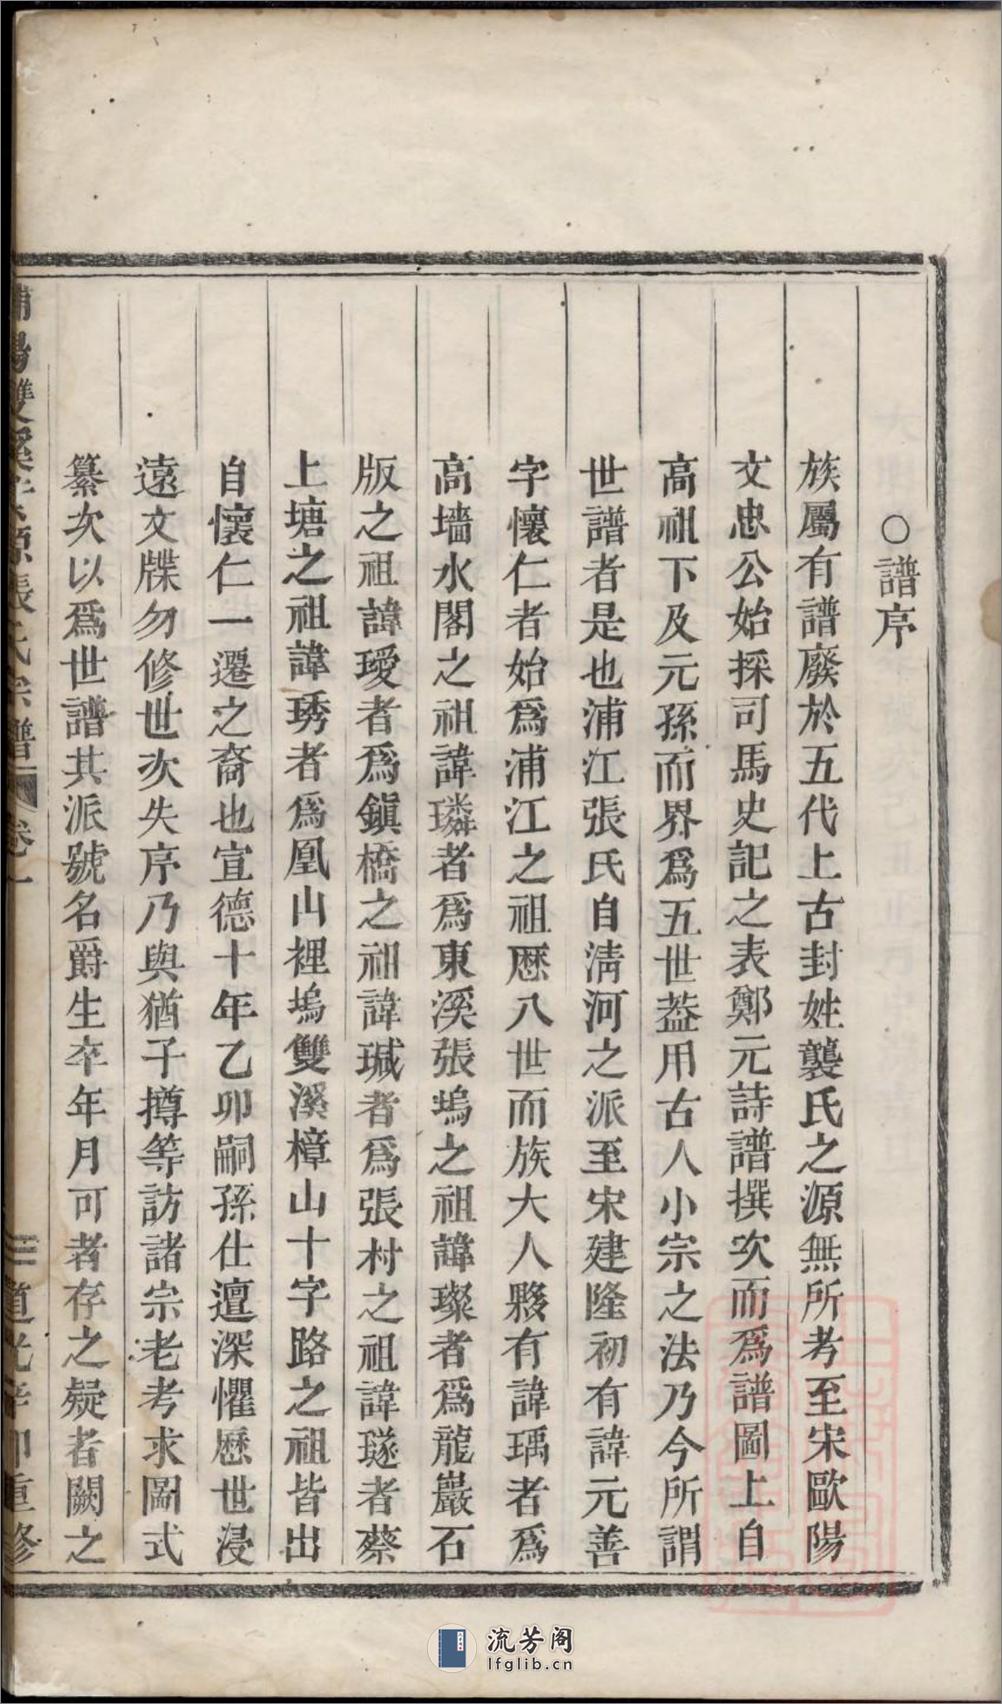 ○譜序
族屬有譜廢於五代上古封姓襲氏之源無所考至宋歐陽
文忠公始採司馬史記之表鄭元詩譜撰次而爲譜圖上自
高祖下及元孫而界爲五世葢用古人小宗之法乃今所謂
世譜者是也浦江張氏自淸河之派至宋建隆初有諱元善
字懷仁者始爲浦江之祖歷八世而族大人夥有諱瑀者爲
高墻水閣之祖諱璘者爲東溪張塢之祖諱璨者爲龍巖石
版之祖諱璦者爲鎭橋之祖諱瑊者爲張村之祖諱璲者蔡
上塘之祖諱琇者爲凰山裡塢雙溪樟山十字路之祖皆出
自懷仁一遷之裔也宣德十年乙卯嗣孫仕澶深懼歷世浸
遠文牒勿修世次失序乃與猶子撙等訪諸宗老考求圖式
纂次以爲世譜其派號名爵生卒年月可者存之疑者闕之
浦陽雙溪 源張氏宗譜 卷一 三 道光辛卯重修
流芳阁
lfglib.cn